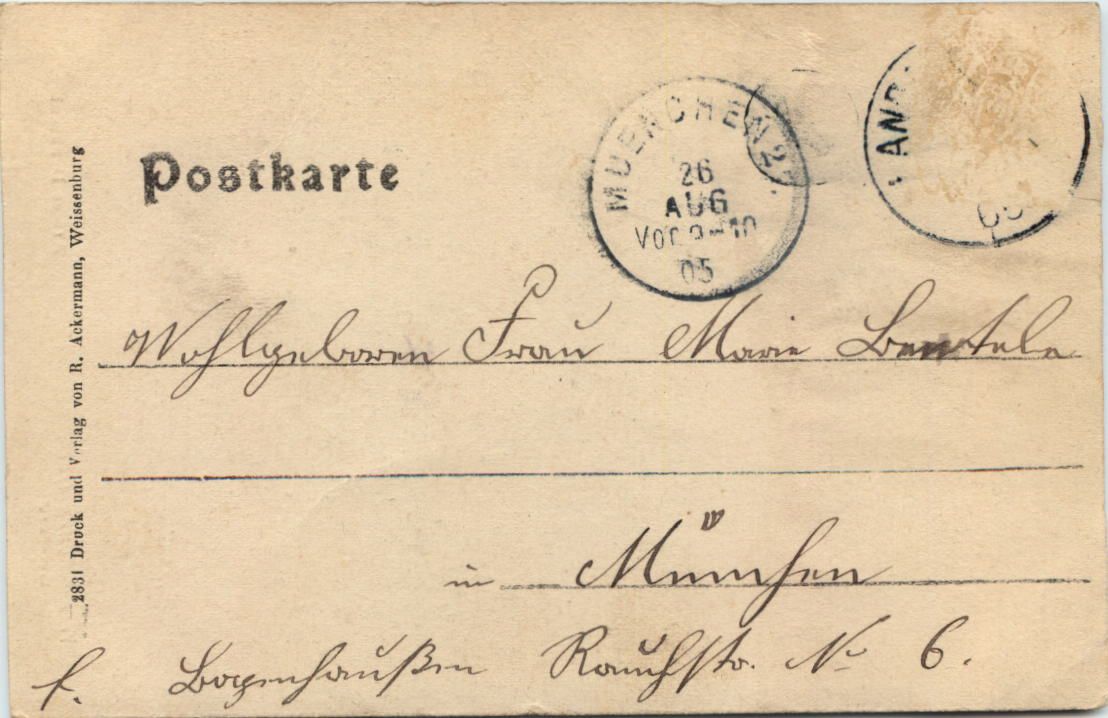 Postkarte
MUENCHEN 2
26
AUG
Vor 9-10
05
Wohlgeboren Frau Marie
in München
f. Bogenhaußen Rauchstr. No 6.
2831 Druck und Verlag von R. Ackermann, Weissenburg